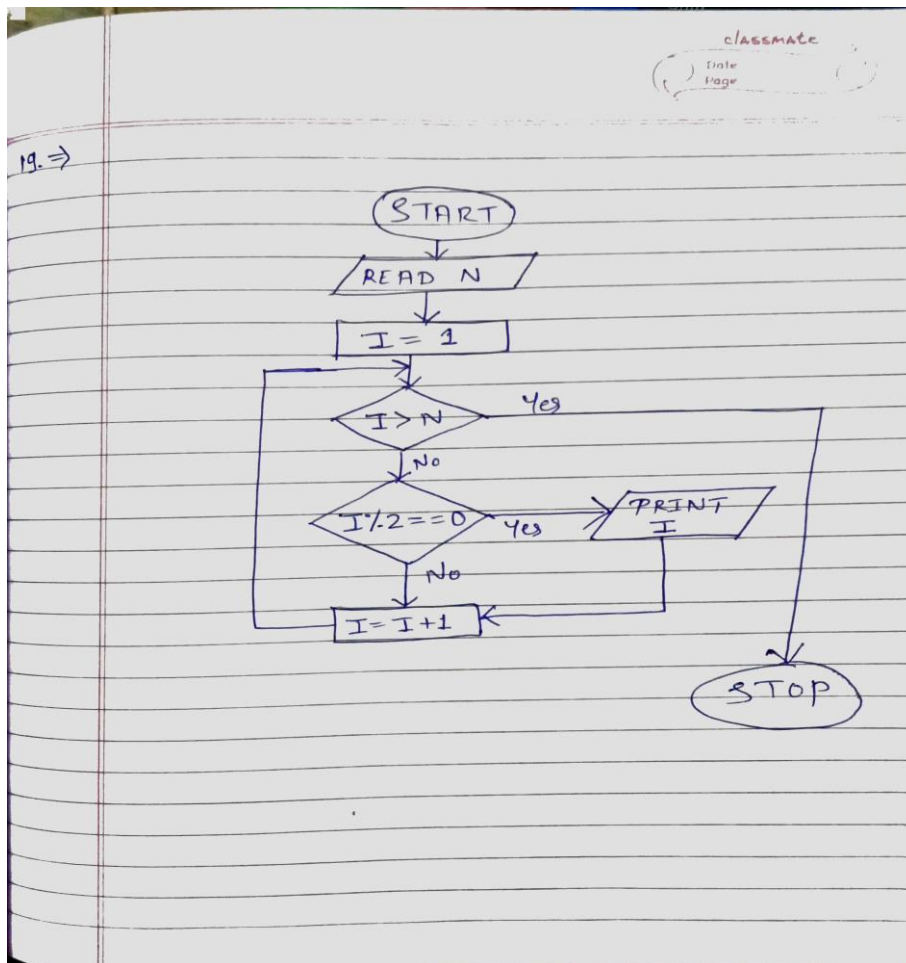 classmate
Date
Page
19. ⇒
START
READ N
I = 1
I > N
Yes
No
I%2==0
Yes
PRINT
I
No
I = I+1
STOP